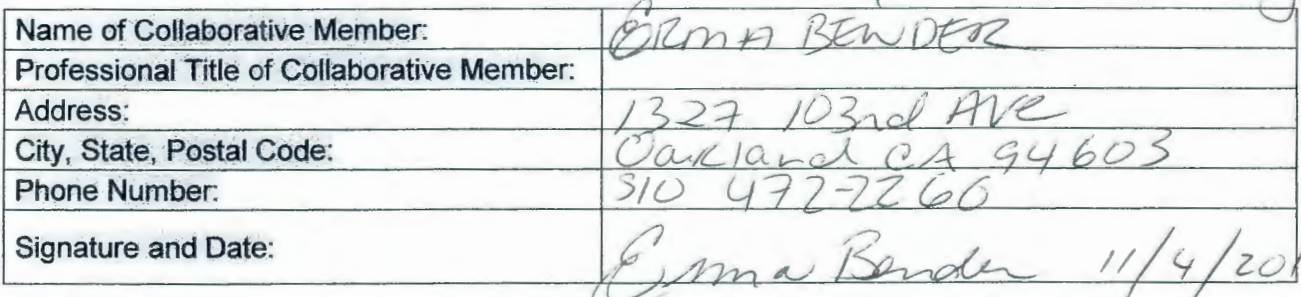 Name of Collaborative Member: ERMA BENDER
Professional Title of Collaborative Member:
Address: 1327 103rd Ave
City, State, Postal Code: Oakland CA 94603
Phone Number: 510 472-2260
Signature and Date: Erma Bender 11/4/201